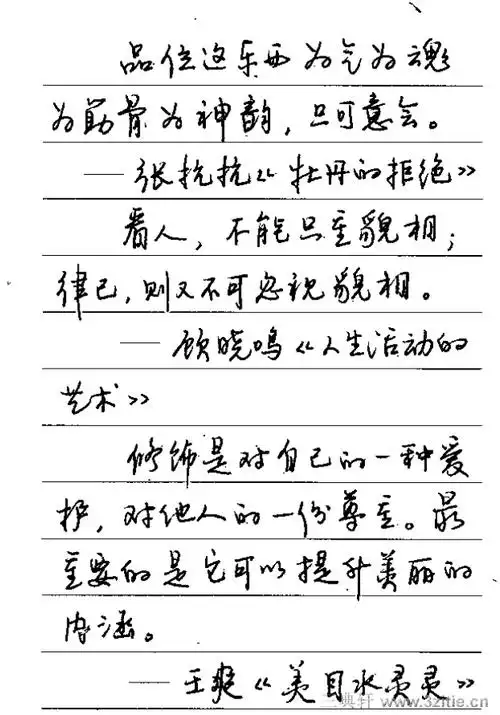 品位这东西为气为魂
为筋骨为神韵，只可意会。
——张抗抗《牡丹的拒绝》
看人，不能只重貌相；
律已，则又不可忽视貌相。
——顾晓鸣《人生活动的
艺术》
修饰是对自己的一种爱
护，对他人的一份尊重。最
重要的是它可以提升美丽的
内涵。
——王爽《美目水灵灵》
三典轩 www.32itie.cn